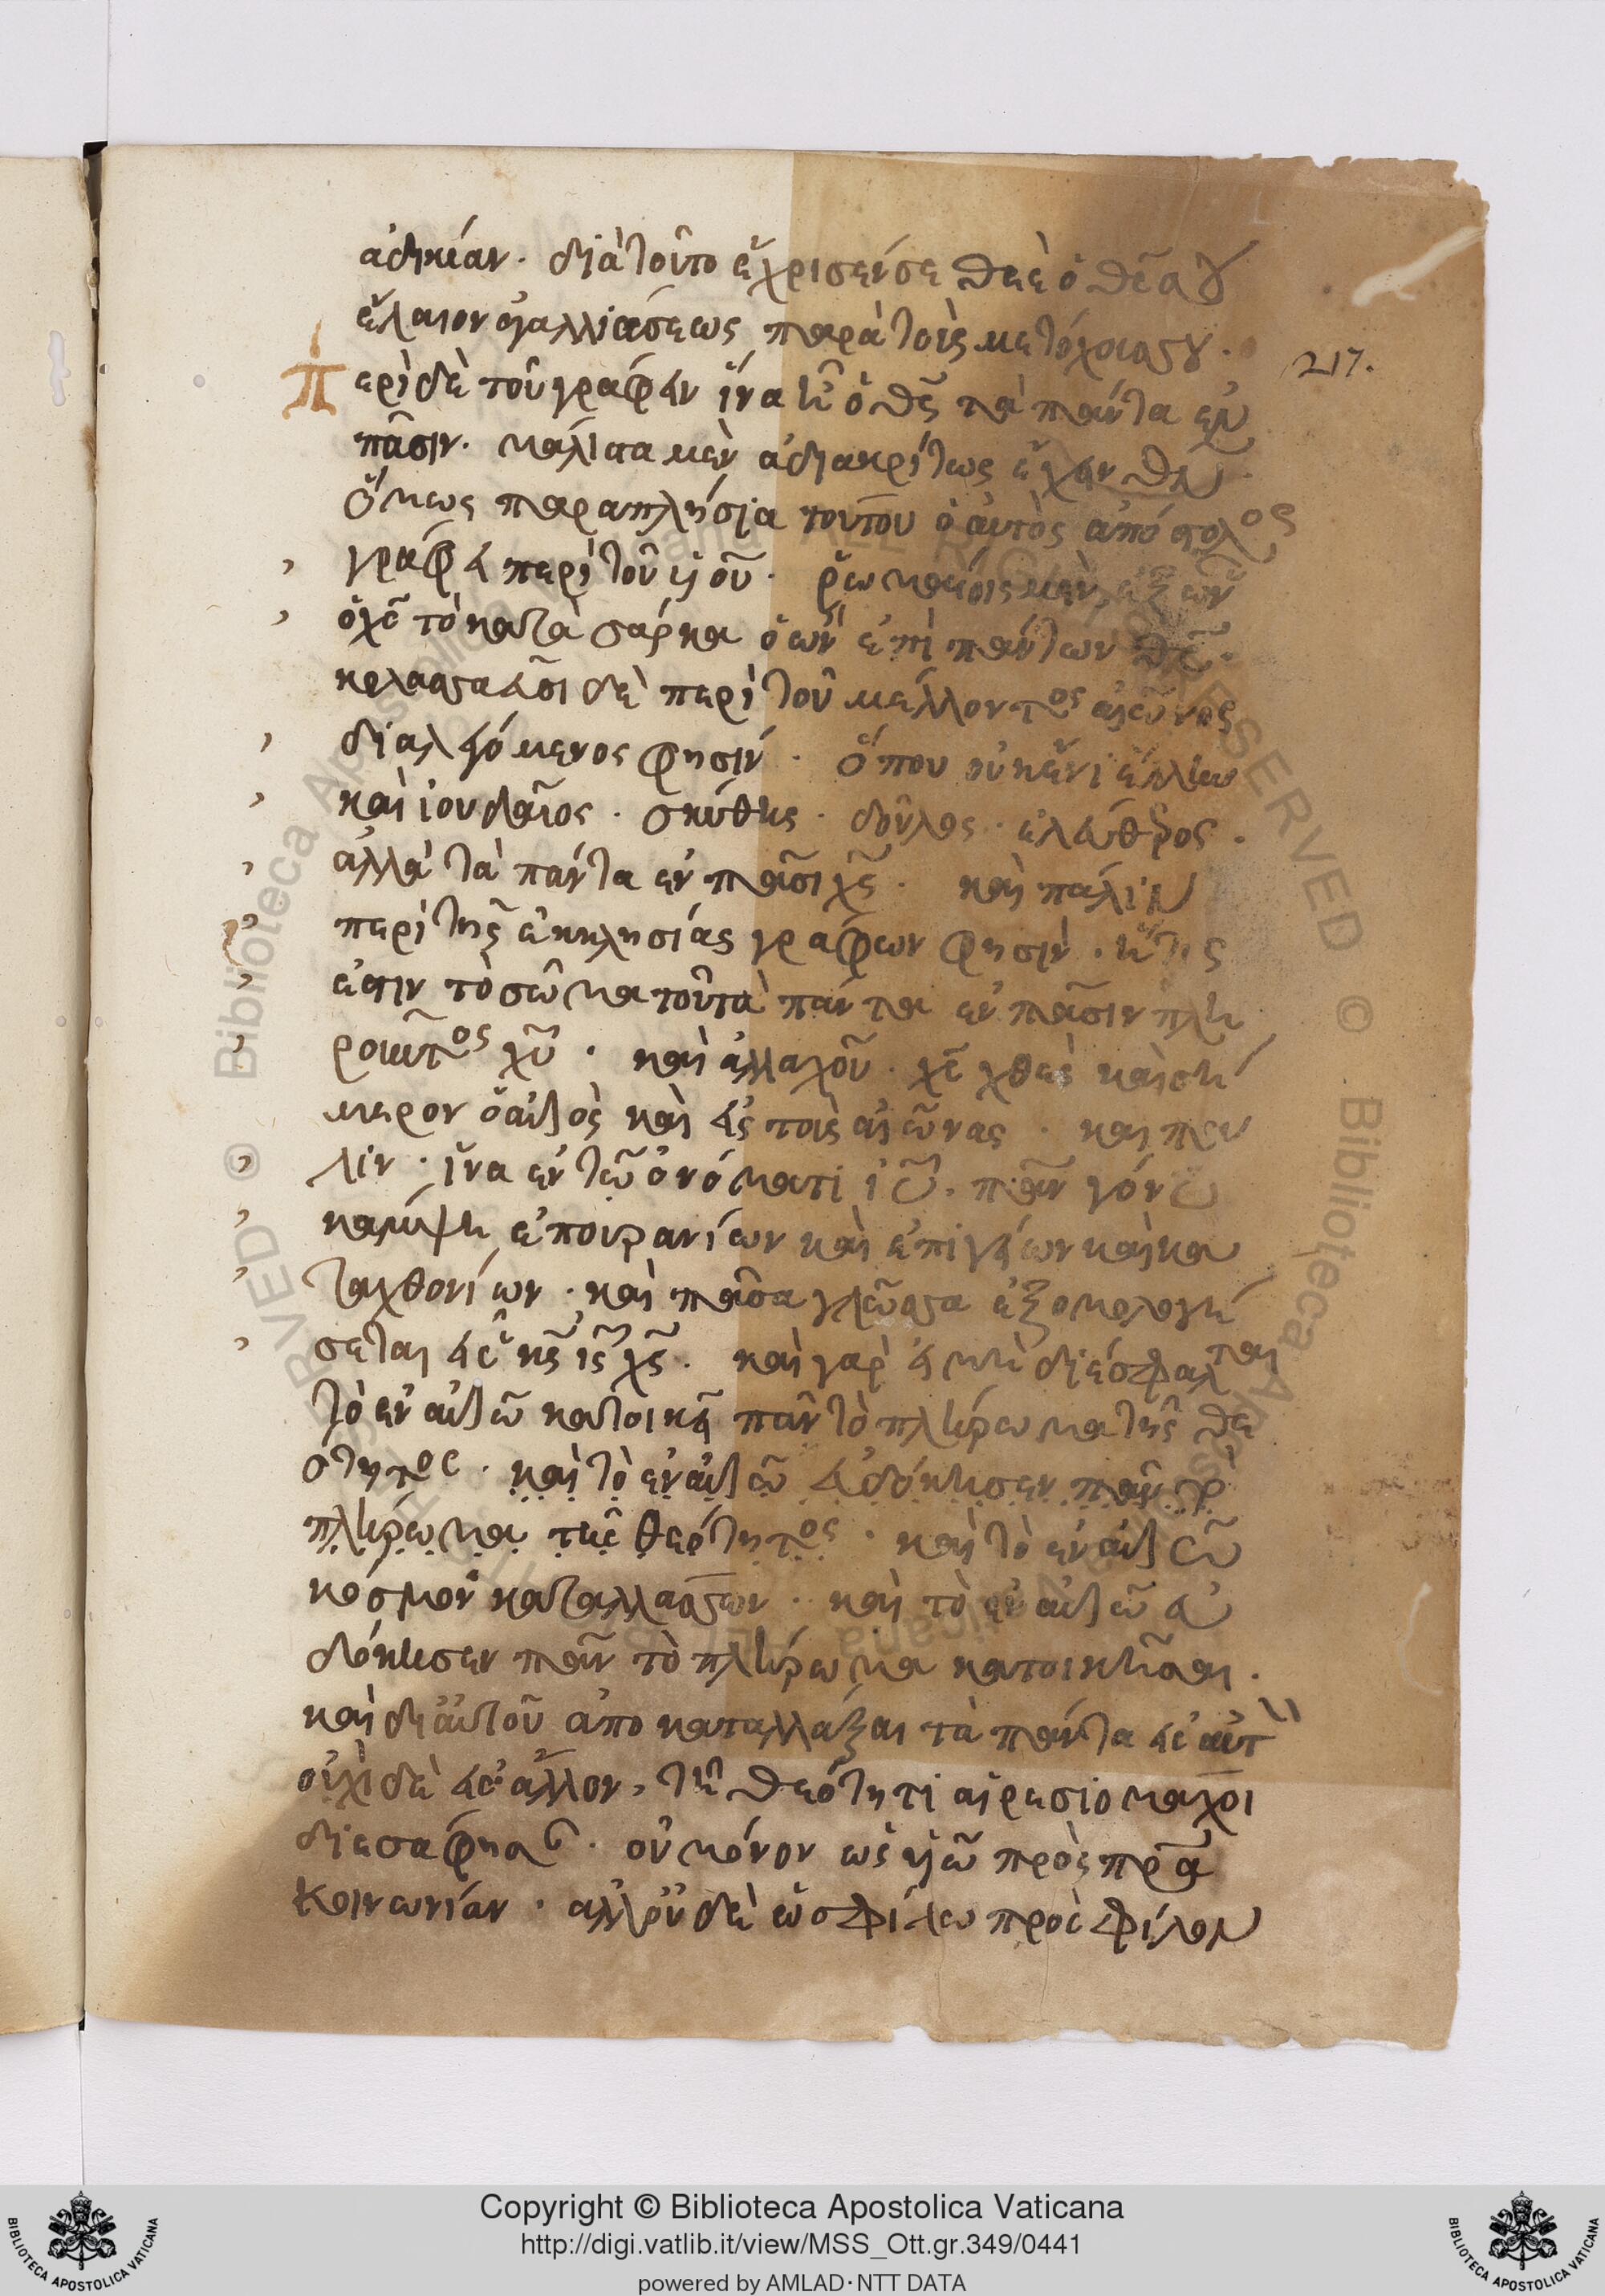 ἀδικίαν. διὰ τοῦτο ἔχρισέν σε θεὲ ὁ θς̃ σου
ἔλαιον ἀγαλλιάσεως παρὰ τοὺς μετόχους σου.
217.
Περὶ δὲ τοῦ γράφειν ἵνα ἦ ὁ θς̃ τὰ πάντα ἐν
πᾶσιν. μάλιστα μὲν ἀδιακρίτως ἔχειν
ὅμως παραπλήσια τούτου ὁ αὐτὸς ἀπόστολος
γράφει περὶ τοῦ υἱοῦ. ῥωμαίοις μὲν, ἐξ ὧν
ὁ χς̃ τὸ κατὰ σάρκα ὁ ὢν ἐπὶ πάντων θς̃.
κολασσαεῦσι δὲ περὶ τοῦ μέλλοντος αἰῶνος
διαλεγόμενος φησίν. ὅπου οὐκ ἔνι ἕλλην
καὶ ἰουδαῖος. σκύθης. δοῦλος. ἐλεύθερος.
ἀλλὰ τὰ πάντα ἐν πᾶσι χς̃. καὶ πάλιν
περὶ τῆς ἐκκλησίας γράφων φησίν. ἥτις
ἐστιν τὸ σῶμα τοῦ τὰ πάντα ἐν πᾶσιν πλη
ροῦντος χῦ. καὶ ἀλλαχοῦ. χς̃ χθὲς καὶ σή
μερον ὁ αὐτὸς καὶ εἰς τοὺς αἰῶνας. καὶ πά
λιν. ἵνα ἐν τῶ ὀνόματι ἰῦ. πᾶν γόνυ
κάμψη ἐπουρανίων καὶ ἐπιγείων καὶ κα
ταχθονίων. καὶ πᾶσα γλῶσσα ἐξομολογή
σεται εἷς κς̃ ις̃ χς̃. καὶ γὰρ εἰ μὴ διέσφαλται
τὸ ἐν αὐτῶ κατοικεῖ πᾶν τὸ πλήρωμα τῆς θε
ότητος. καὶ τὸ ἐν αὐτῶ εὐδόκησεν πᾶν τὸ
πλήρωμα τῆς θεότητος. καὶ τὸ ἐν αὐτῶ
κόσμον καταλλάσσων. καὶ τὸ ἐν αὐτῶ εὐ
δόκησεν πᾶν τὸ πλήρωμα κατοικῆσαι.
καὶ δι' αὐτοῦ ἀποκαταλλάξαι τὰ πάντα εἰς αὐτ
οὐχὶ δὲ εἰς ἄλλον, τῆ θεότητι αἱρεσιομάχοι
διεσάφησ. οὐ μόνον ὡς υἱῶ πρὸς πρ̃α
κοινωνίαν. ἀλλ' οὐδὲ ὡς φίλω πρὸς φίλον
Copyright © Biblioteca Apostolica Vaticana
http://digi.vatlib.it/view/MSS_Ott.gr.349/0441
powered by AMLAD·NTT DATA
BIBLIOTECA APOSTOLICA VATICANA
BIBLIOTECA APOSTOLICA VATICANA